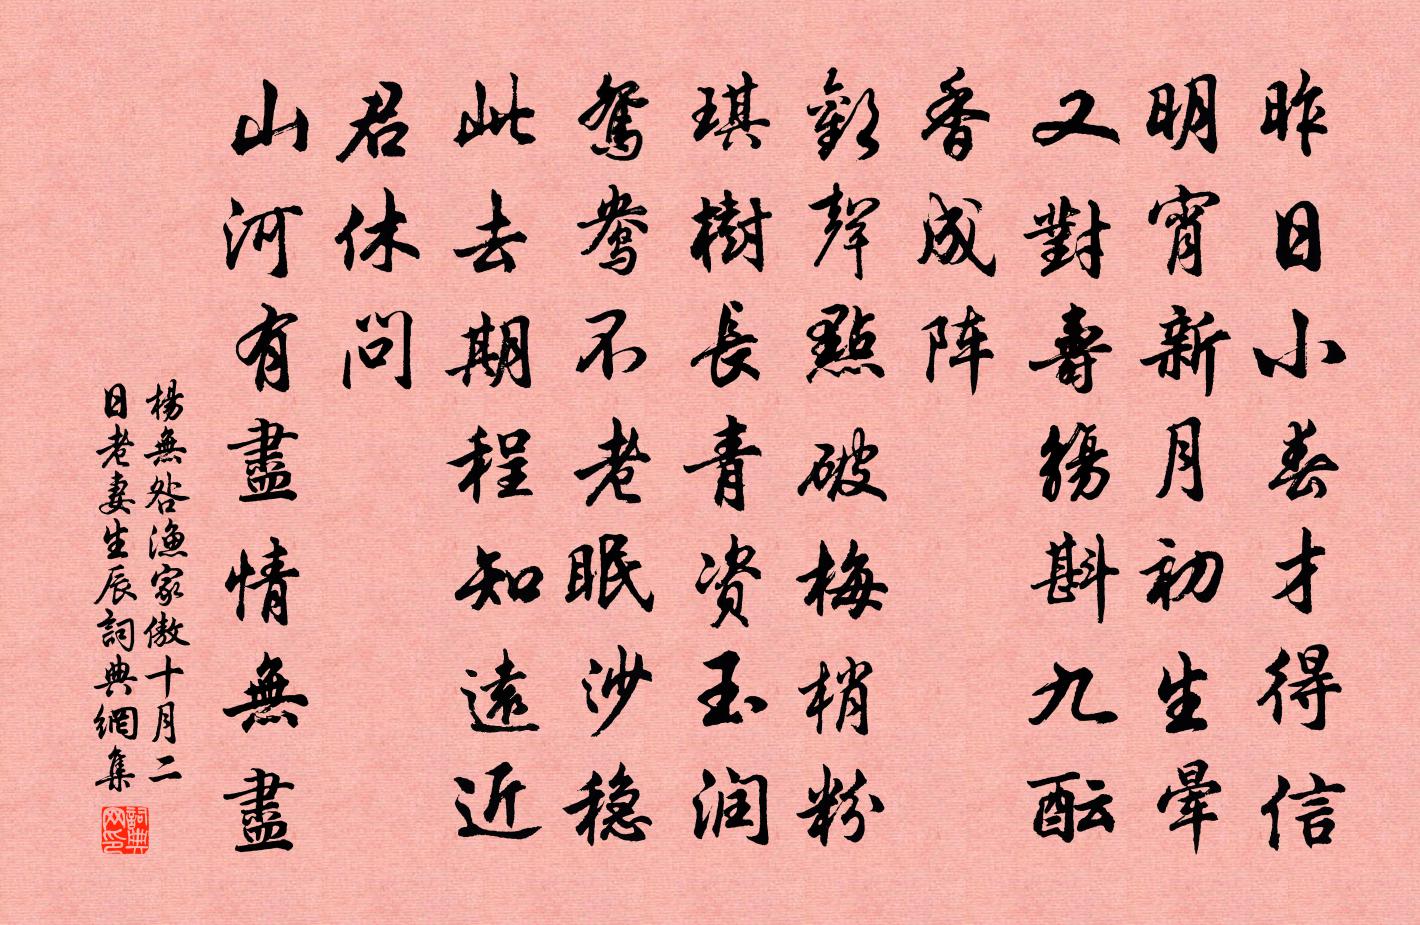 昨日小春才得信
明宵新月初生暈
又對壽觴斟九醖
香成阵
歡聲點破梅梢粉
琪樹長青資玉润
鴛鴦不老眠沙穏
此去期程知遠近
君休問
山河有盡情無盡
楊無咎漁家傲十月二
日老妻生辰詞典網集
詞典
网印